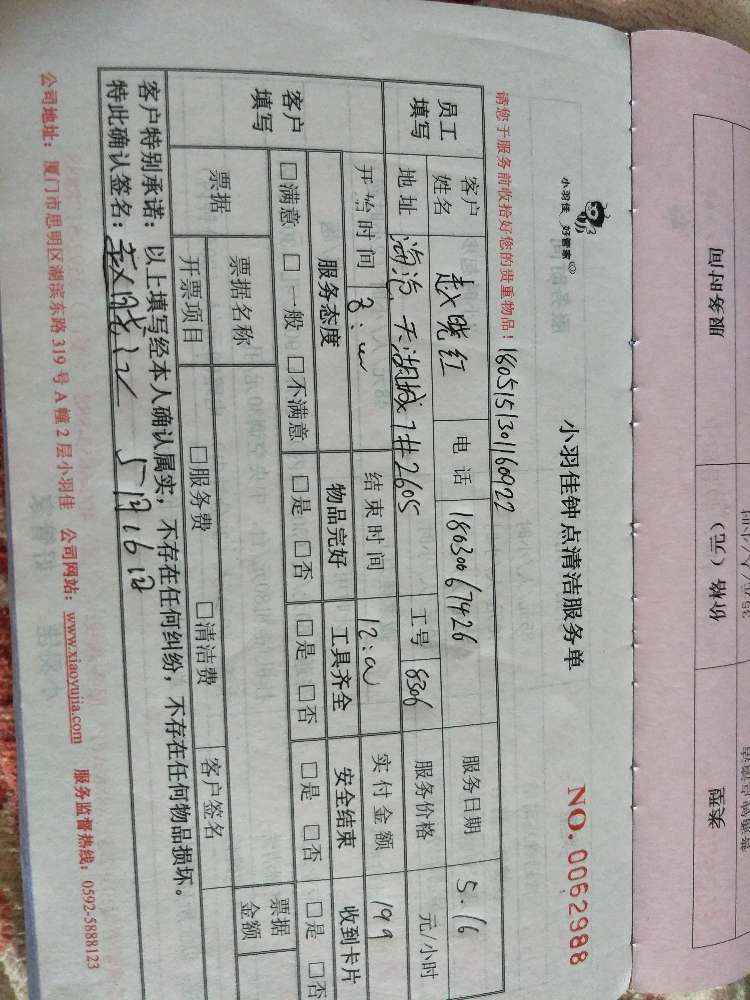 小羽佳 好管家
小羽佳钟点清洁服务单
NO. 0062988
请您于服务前收拾好您的贵重物品！1805151301160922
员工填写 客户姓名 赵晓红 电话 18030067426 服务日期 5.16
地址 海沧 天湖城7#2605 工号 8306 服务价格 元/小时
客户填写 开始时间 8: 结束时间 12: 实付金额 199
服务态度 物品完好 工具齐全 安全结束 收到卡片
□满意 □一般 □不满意 □是 □否 □是 □否 □是 □否 □是 □否
票据 票据名称 票据金额
开票项目 □服务费 □清洁费 客户签名
客户特别承诺：以上填写经本人确认属实，不存在任何纠纷，不存在任何物品损坏。
特此确认签名：赵晓红 5月16日
公司地址：厦门市思明区湖滨东路 319 号 A 幢 2 层小羽佳 公司网站：www.xiaoyujia.com 服务监督热线：0592-5888123
服务时间
价格（元）
类型